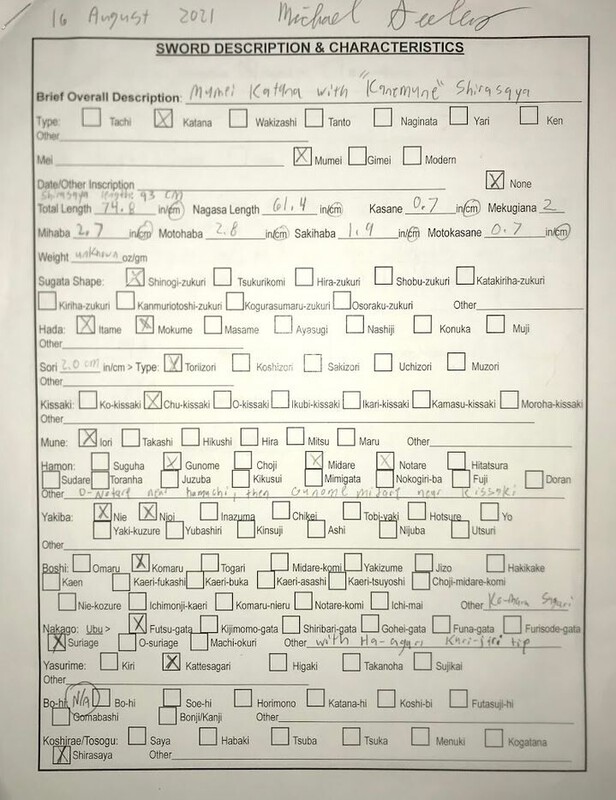 16 August 2021 Michael
SWORD DESCRIPTION & CHARACTERISTICS
Brief Overall Description: Mumei Katana with "Kanemune" Shirasaya
Type: Tachi X Katana Wakizashi Tanto Naginata Yari Ken
Other
Mei X Mumei Gimei Modern
Date/Other Inscription X None
Shirasaya length: 93 cm
Total Length 74.8 in/cm Nagasa Length 61.4 in/cm Kasane 0.7 in/cm Mekugiana 2
Mihaba 2.7 in/cm Motohaba 2.8 in/cm Sakihaba 1.9 in/cm Motokasane 0.7 in/cm
Weight unknown oz/gm
Sugata Shape: X Shinogi-zukuri Tsukurikomi Hira-zukuri Shobu-zukuri Katakiriha-zukuri
Kiriha-zukuri Kanmuriotoshi-zukuri Kogurasumaru-zukuri Osoraku-zukuri Other
Hada: X Itame X Mokume Masame Ayasugi Nashiji Konuka Muji
Other
Sori 2.0 cm in/cm > Type: X Toriizori Koshizori Sakizori Uchizori Muzori
Other
Kissaki: Ko-kissaki X Chu-kissaki O-kissaki Ikubi-kissaki Ikari-kissaki Kamasu-kissaki Moroha-kissaki
Other
Mune: X Iori Takashi Hikushi Hira Mitsu Maru Other
Hamon: Suguha X Gunome Choji X Midare X Notare Hitatsura
Sudare Toranha Juzuba Kikusui Mimigata Nokogiri-ba Fuji Doran
Other O-Notare near hamachi, then Gunome midare near Kissaki
Yakiba: X Nie X Nioi Inazuma Chikei Tobi-yaki Hotsure Yo
Yaki-kuzure Yubashiri Kinsuji Ashi Nijuba Utsuri
Other
Boshi: Omaru X Komaru Togari Midare-komi Yakizume Jizo Hakikake
Kaen Kaeri-fukashi Kaeri-buka Kaeri-asashi Kaeri-tsuyoshi Choji-midare-komi
Nie-kozure Ichimonji-kaeri Komaru-nieru Notare-komi Ichi-mai Other
Nakago: Ubu > X Futsu-gata Kijimomo-gata Shiribari-gata Gohei-gata Funa-gata Furisode-gata
X Suriage O-suriage Machi-okuri Other with Ha-agari Kuri-jiri tip
Yasurime: Kiri X Kattesagari Higaki Takanoha Sujikai
Other
Bo-hi: N/A Bo-hi Soe-hi Horimono Katana-hi Koshi-bi Futasuji-hi
Gomabashi Bonji/Kanji Other
Koshirae/Tosogu: Saya Habaki Tsuba Tsuka Menuki Kogatana
X Shirasaya Other